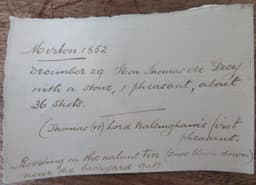 Merton 1852
December 29 Hon Thomas de Grey
with a stone, 1 pheasant, about
36 shots.
(Thomas (VI) Lord Walsingham's first
pheasant.
Roosting in the walnut tree (since blown down)
near the backyard gate